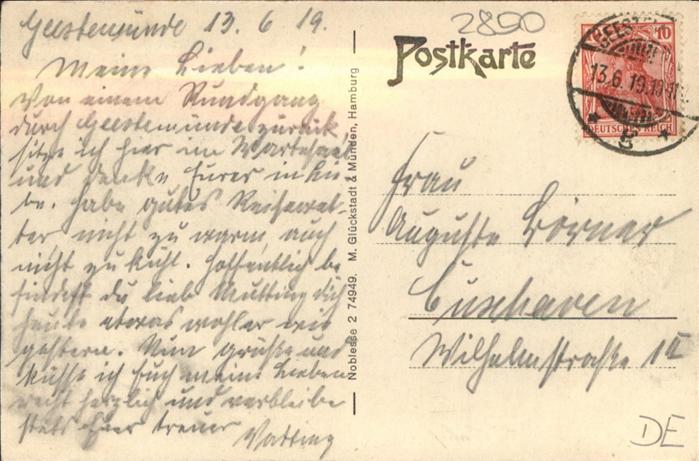 Geestemünde 13.6.19.
Meine Lieben!
Von einem Rundgang
durch Geestemünde zurück,
sitze ich hier im Wartesaal
und denke Eurer in Lie-
be. Habe gutes Reisewet-
ter nicht zu warm, auch
nicht zu kühl. Hoffentlich be-
findest du lieb Mutting dich
heute etwas wohler wie
gestern. Nun grüße und
küsse ich Euch meine Lieben
recht herzlich und verbleibe
stets Euer treuer
Vatting
Noblesse 2 74949. M. Glückstadt & Münden, Hamburg
2800
Postkarte
10
DEUTSCHES REICH
13.6.19.10-11
Frau
Auguste Lörner
Cuxhaven
Wilhelmstraße
DE